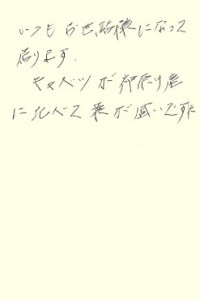 いつもお世話様になって
居ります。
キャベツが神奈川産
に比べて葉が固いですね